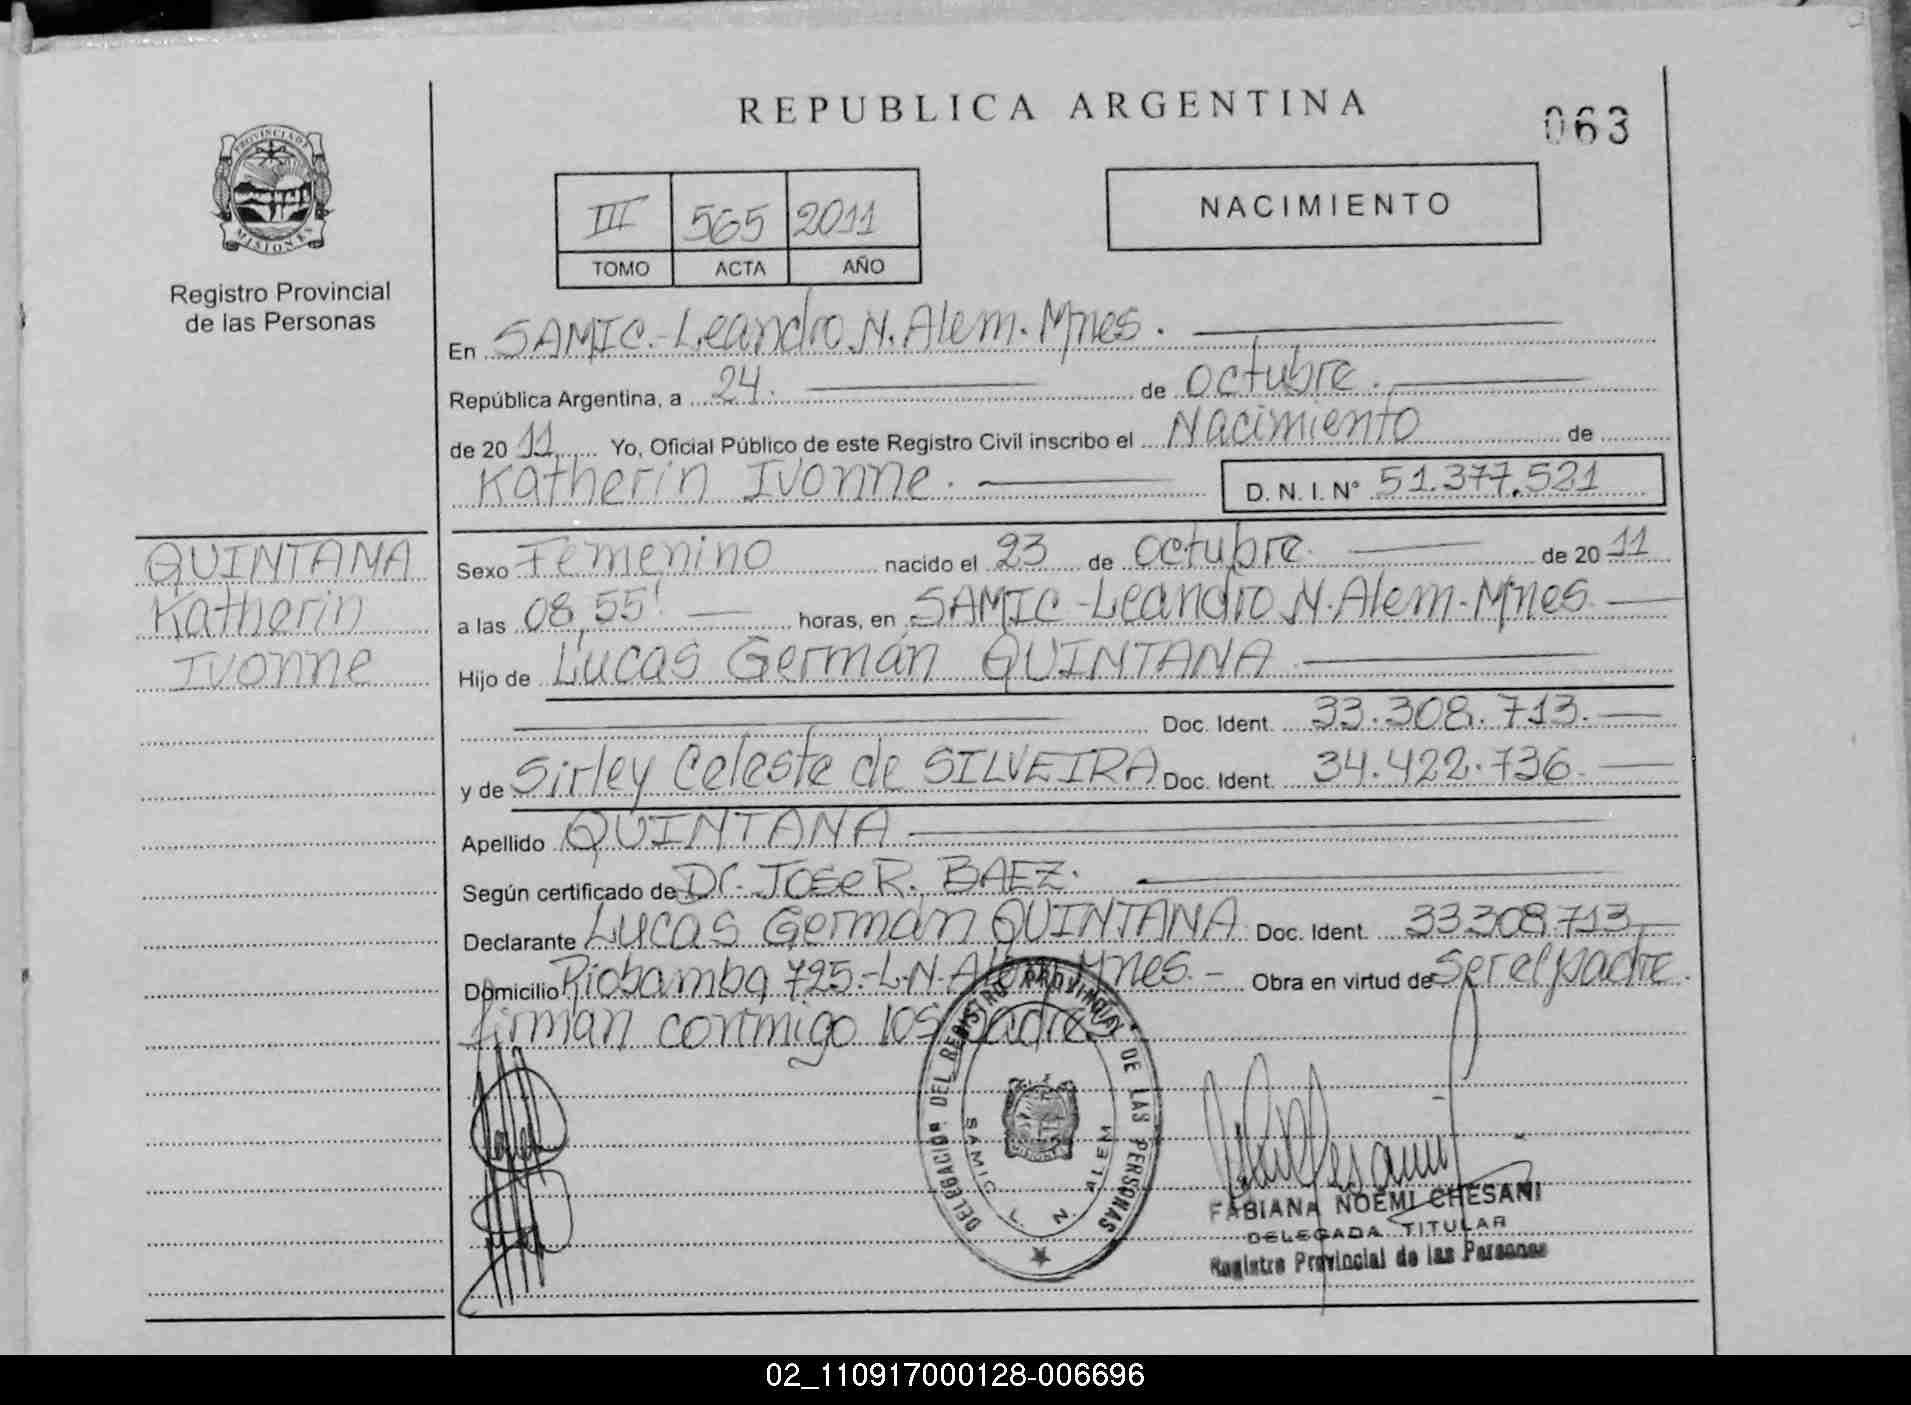 REPUBLICA ARGENTINA
063
PROVINCIA DE
MISIONES
Registro Provincial
de las Personas
III 565 2011
TOMO ACTA AÑO
NACIMIENTO
En SAMIC.-Leandro N. Alem. Mnes.
República Argentina, a 24. de octubre.
de 20 11 Yo, Oficial Público de este Registro Civil inscribo el Nacimiento de
Katherin Ivonne. D. N. I. N° 51.377.521
QUINTANA
Katherin
Ivonne
Sexo Femenino nacido el 23 de octubre. de 20 11
a las 08,55' horas, en SAMIC -Leandro N. Alem. Mnes
Hijo de Lucas Germán QUINTANA
Doc. Ident. 33.308.713.
y de Sirley Celeste de SILVEIRA Doc. Ident. 34.422.736.
Apellido QUINTANA
Según certificado de Dr. Jose R. BAEZ.
Declarante Lucas Germán QUINTANA Doc. Ident. 33.308.713
Domicilio Riobamba 725.-L.N. Alem Mnes.- Obra en virtud de Ser el padre.
firman conmigo los padres
DELEGACION DEL REGISTRO PROVINCIAL DE LAS PERSONAS
SAMIC L. N. ALEM
FABIANA NOEMI CHESANI
DELEGADA TITULAR
Registro Provincial de las Personas
02_110917000128-006696